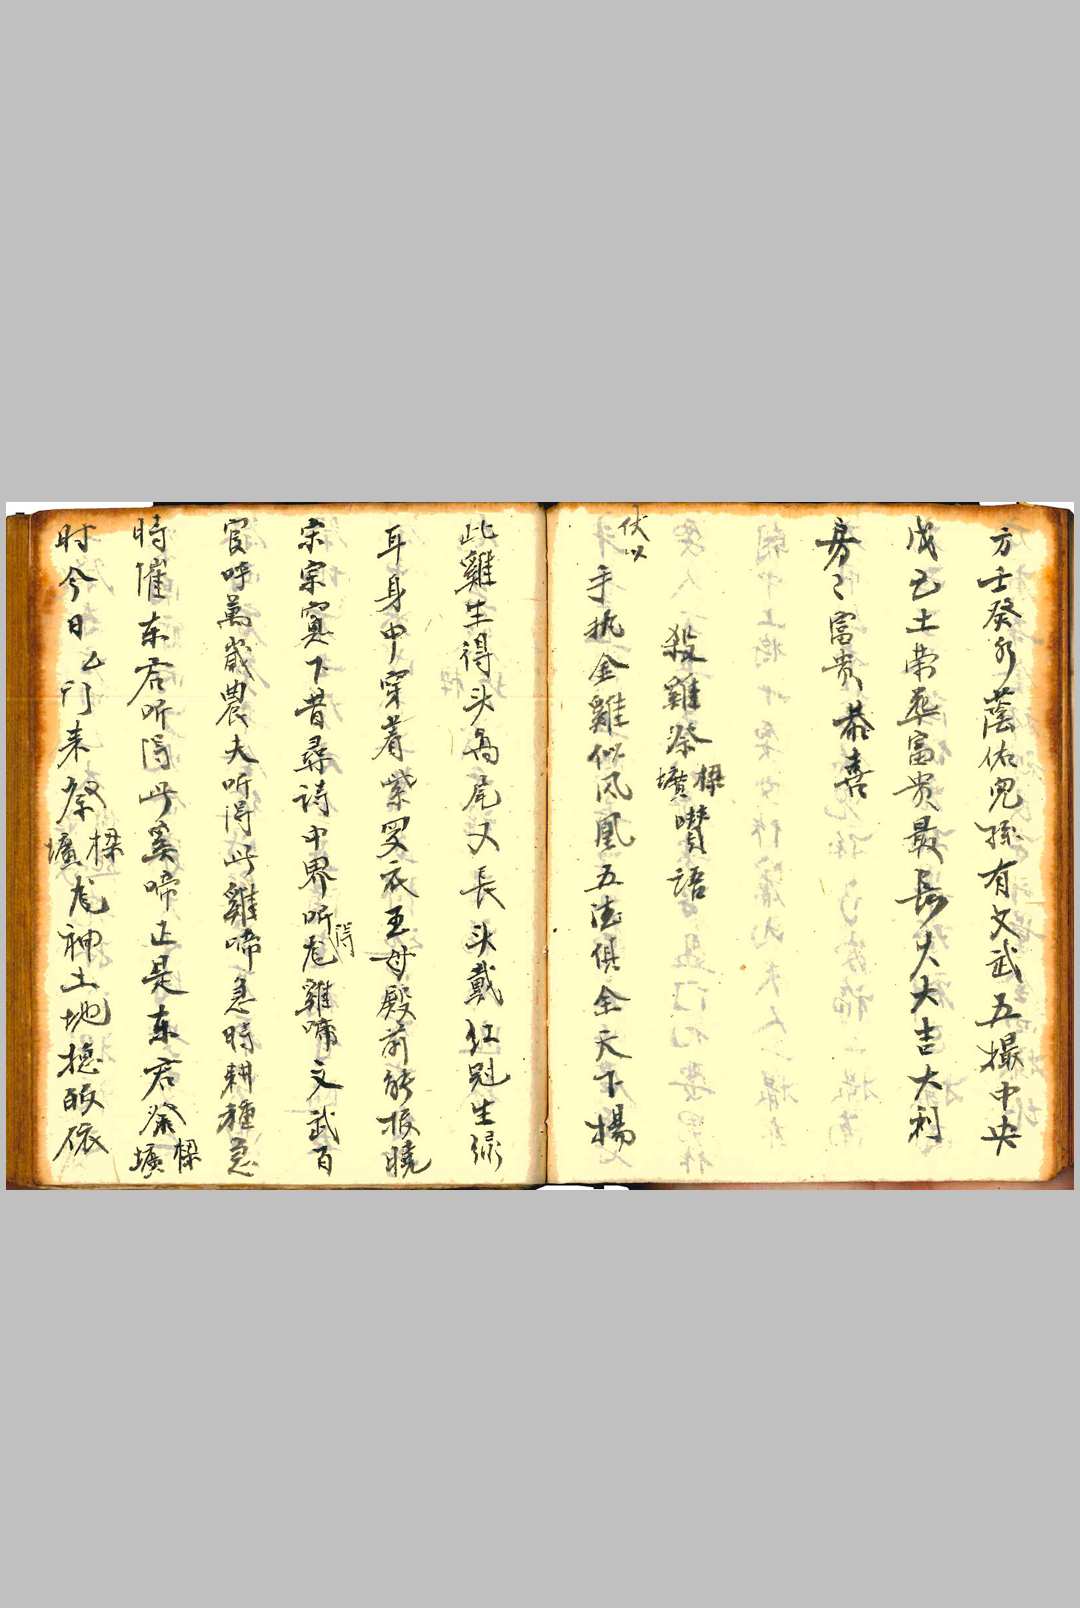 方壬癸水蔭佑兒孫有文武五撮中央
戊己土荣华富贵最長久大吉大利
房々富贵 恭喜
殺雞祭樑壙讚語
伏以
手执金雞似凤凰五德俱全天下揚
此雞生得头高尾又長头戴红冠生绿
耳身中穿着紫罗衣王母殿前能报曉
宗宗寞下昔尋詩中界听得尨雞啼文武百
官呼萬歲農夫听得此雞啼急時耕種急
時催东君听得此奚啼正是东君祭樑壙
时今日厶门来祭樑壙尨神土地摠皈依